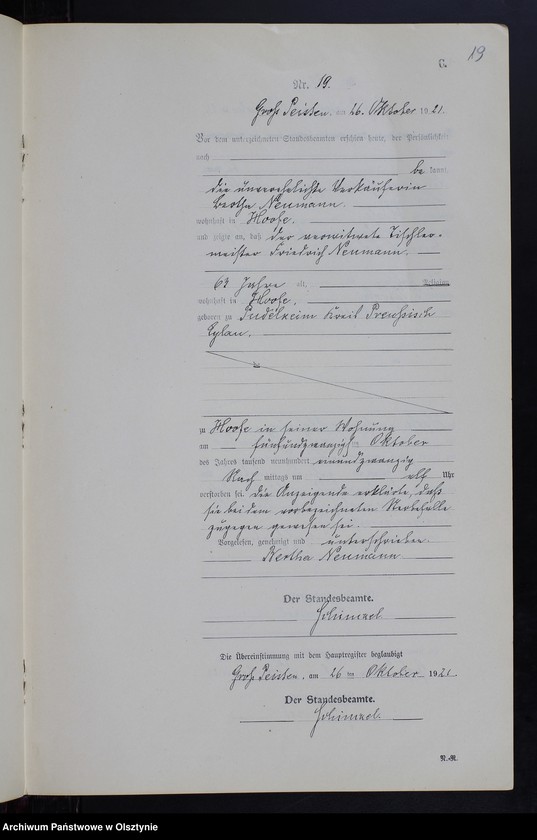 19
C.
Nr. 19.
Groß Peisten, am 26. Oktober 1921.
Vor dem unterzeichneten Standesbeamten erschien heute, der Persönlichkeit
nach
be kannt,
die unverehelichte Verkäuferin
Bertha Neumann.
wohnhaft in Hoofe.
und zeigte an, daß der verwitwete Tischler-
meister Friedrich Neumann.
63 Jahre alt, Religion
wohnhaft in Hoofe,
geboren zu Kreis Preußisch
Eylau.
zu Hoofe in seiner Wohnung
am fünfundzwanzigsten Oktober
des Jahres tausend neunhundert einundzwanzig
Nach mittags um elf Uhr
verstorben sei. Die Anzeigende erklärte, daß
sie bei dem vorbezeichneten Sterbefalle
zugegen gewesen sei.
Vorgelesen, genehmigt und unterschrieben.
Bertha Neumann
Der Standesbeamte.
Die Übereinstimmung mit dem Hauptregister beglaubigt
Groß Peisten, am 26 ten Oktober 1921.
Der Standesbeamte.
R.-R.
Archiwum Państwowe w Olsztynie